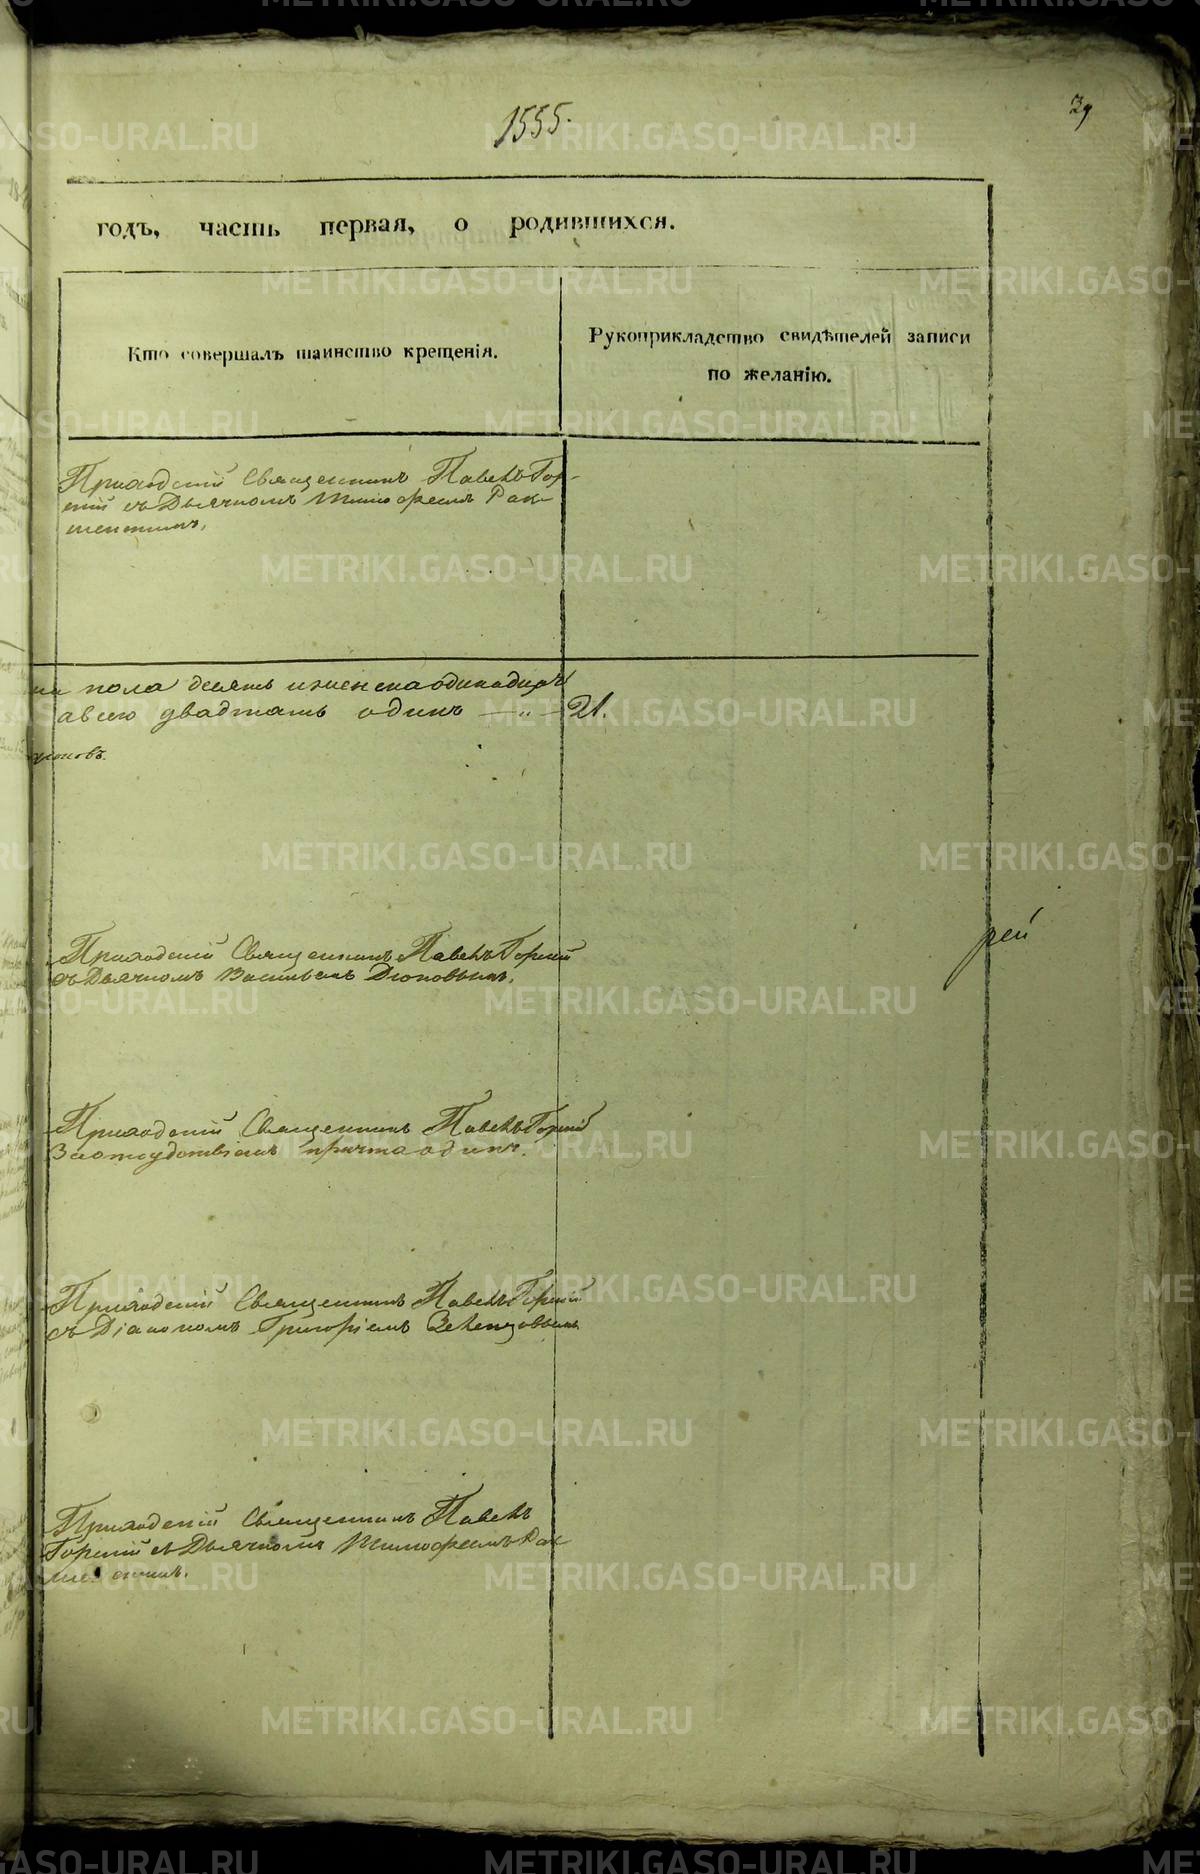 1555.
39
годъ, часть первая, о родившихся.
Кто совершалъ таинство крещенія.
Рукоприкладство свидѣтелей записи
по желанію.
Приходскій Священникъ Павелъ Гор-
скій съ Дьячкомъ Тимофеемъ Рак-
шентимъ.
пола десять и женска одинадцать
а всего двадцать одинъ — " — 21.
Приходскій Священникъ Павелъ Горскій
съ Дьячкомъ Васильемъ
рей
Приходскій Священникъ Павелъ Горскій
За отсудствіемъ причта одинъ.
Приходскій Священникъ Павелъ Горскій
съ Діакономъ Григоріемъ
Приходскій Священникъ Павелъ
Горскій съ Дьячкомъ Тимофеемъ Рак
METRIKI.GASO-URAL.RU